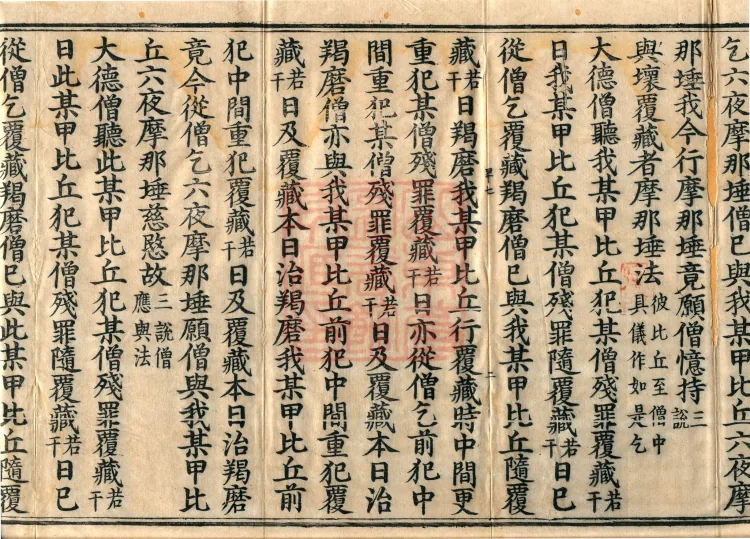 乞六夜摩那埵僧已與我某甲比丘六夜摩
那埵我今行摩那埵竟願僧憶持三說
與壞覆藏者摩那埵法彼比丘至僧中具儀作如是乞
大德僧聽我某甲比丘犯某僧殘罪覆藏若干
日我某甲比丘犯某僧殘罪隨覆藏若干日已
從僧乞覆藏羯磨僧已與我某甲比丘隨覆
藏若干日羯磨我某甲比丘行覆藏時中間更
重犯某僧殘罪覆藏若干日亦從僧乞前犯中
間重犯某僧殘罪覆藏若干日及覆藏本日治
羯磨僧亦與我某甲比丘前犯中間重犯覆
藏若干日及覆藏本日治羯磨我某甲比丘前
犯中間重犯覆藏若干日及覆藏本日治羯磨
竟今從僧乞六夜摩那埵願僧與我某甲比
丘六夜摩那埵慈愍故三說僧應與法
大德僧聽此某甲比丘犯某僧殘罪覆藏若干
日此某甲比丘犯某僧殘罪隨覆藏若干日已
從僧乞覆藏羯磨僧已與此某甲比丘隨覆